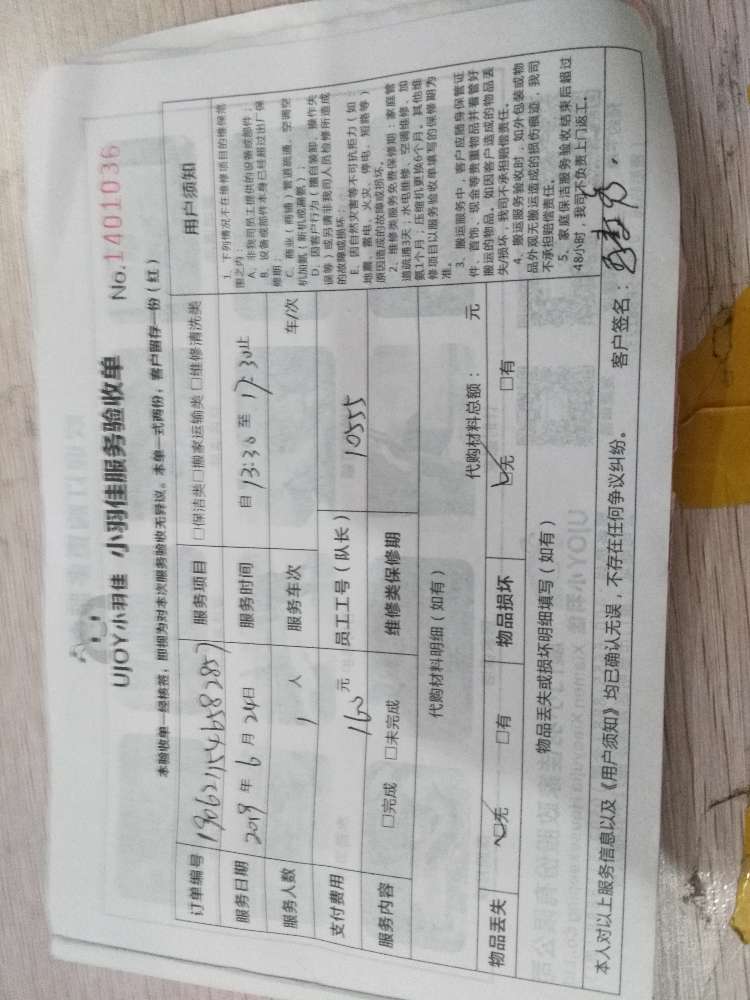 UJOY小羽佳 小羽佳服务验收单 No.1401036
本验收单一经核签，即视为对本次服务验收无异议。本单一式两份，客户留存一份（红）
订单编号 服务项目 □保洁类 □搬家运输类 □维修清洗类
服务日期 2019年6月24日 服务时间 自 13:30 至 17:30止
服务人数 1 人 服务车次 车/次
支付费用 160 元 员工工号（队长） 10555
服务内容 □完成 □未完成 维修类保修期
代购材料明细（如有） 代购材料总额： 元
物品丢失 □无 □有 物品损坏 □无 □有
物品丢失或损坏明细填写（如有）
用户须知
1、下列情况不在维修项目的维保范
围之内：
A、非我司员工提供的设备或部件；
B、设备或部件本身已经超过出厂保
修期；
C、商业（商铺）管道疏通、空调空
机加氨（新机或漏氨）；
D、因客户行为（擅自装卸、操作失
误等）或另请非我司人员检修所造成
的故障或损坏；
E、因自然灾害等不可抗拒力（如：
地震、雷电、火灾、停电、短路等）
原因造成的故障或损坏。
2、维修类服务免费保修期：家庭管
道疏通3天；水电维修、空调维修、加
氨1个月；压缩机更换6个月。其他维
修项目以服务验收单填写的保修期为
准。
3、搬运服务中，客户应随身保管证
件、首饰、现金等贵重物品并看管好
搬运的物品，如因客户造成的物品丢
失/损坏，我司不承担赔偿责任。
4、搬运服务验收时，如外包装或物
品外观无搬运造成的损伤痕迹，我司
不承担赔偿责任。
5、家庭保洁服务验收结束后超过
48小时，我司不负责上门返工。
本人对以上服务信息以及《用户须知》均已确认无误，不存在任何争议纠纷。 客户签名：